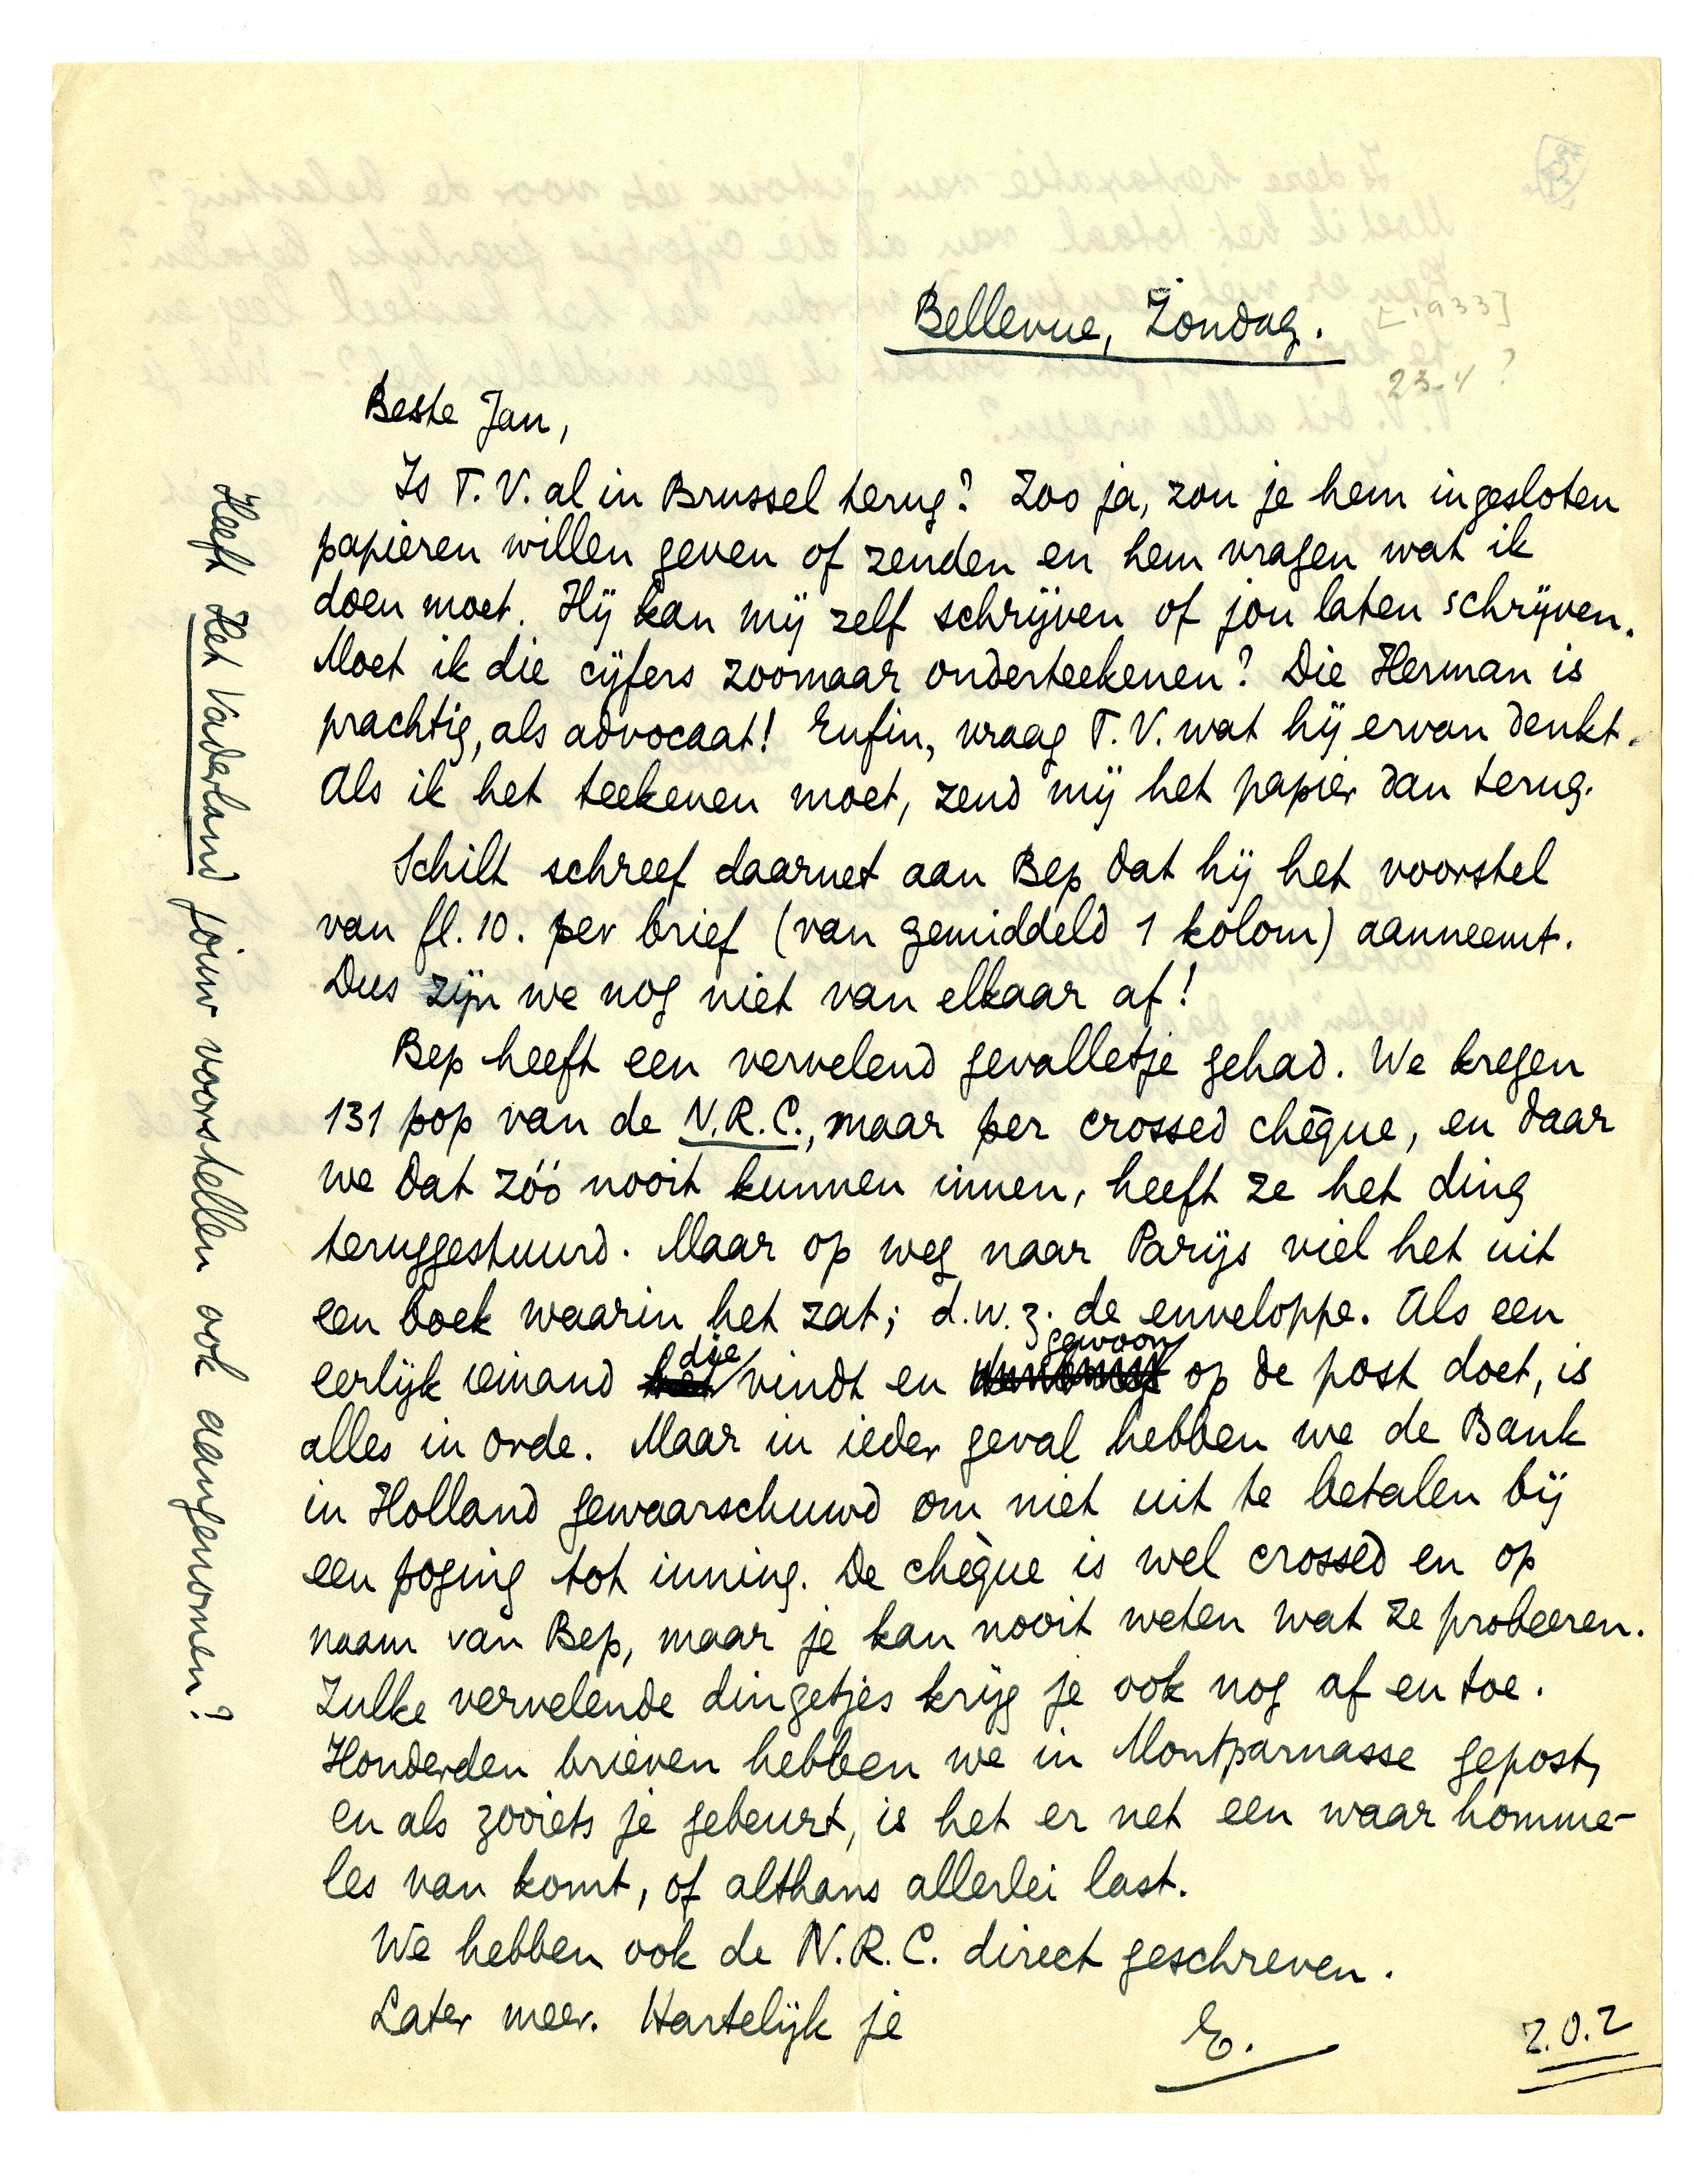 Bellevue, Zondag.
[1933]
23-4 ?
Beste Jan,
Is T.V. al in Brussel terug? Zoo ja, zou je hem ingesloten
papieren willen geven of zenden en hem vragen wat ik
doen moet. Hij kan mij zelf schrijven of jou laten schrijven.
Moet ik die cijfers zoomaar onderteekenen? Die Herman is
prachtig, als advocaat! Enfin, vraag T.V. wat hij ervan denkt.
Als ik het teekenen moet, zend mij het papier dan terug.
Schilt schreef daarnet aan Bep dat hij het voorstel
van fl. 10. per brief (van gemiddeld 1 kolom) aanneemt.
Dus zijn we nog niet van elkaar af!
Bep heeft een vervelend gevalletje gehad. We kregen
131 pop van de N.R.C., maar per crossed chèque, en daar
we dat zóó nooit kunnen innen, heeft ze het ding
teruggestuurd. Maar op weg naar Parijs viel het uit
een boek waarin het zat; d.w.z. de enveloppe. Als een
eerlijk iemand die vindt en gewoon op de post doet, is
alles in orde. Maar in ieder geval hebben we de Bank
in Holland gewaarschuwd om niet uit te betalen bij
een poging tot inning. De chèque is wel crossed en op
naam van Bep, maar je kan nooit weten wat ze probeeren.
Zulke vervelende dingetjes krijg je ook nog af en toe.
Honderden brieven hebben we in Montparnasse gepost,
en als zooiets je gebeurt, is het er net een waar homme-
les van komt, of althans allerlei last.
We hebben ook de N.R.C. direct geschreven.
Later meer. Hartelijk je
E.
Z.O.Z
Heeft Het Vaderland jouw voorstellen ook aangenomen?